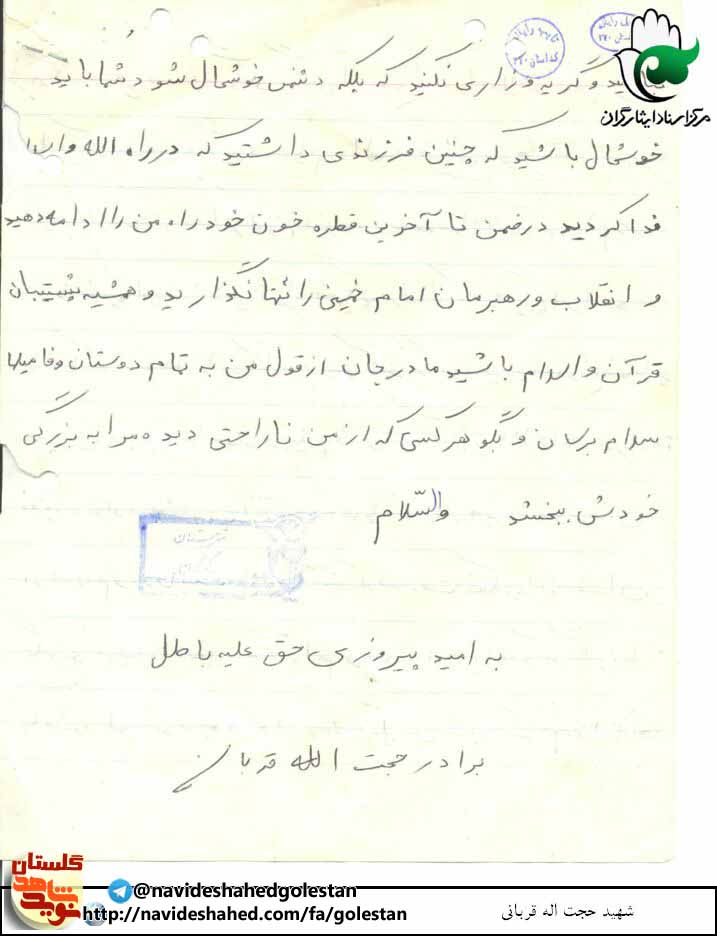 و گریه و زاری نکنید که یکه دشمن خوشمال شود شما باید
خوشمال باشید که چنین فرزندی داشتید که در راه الله و اسلام
فدا کردید در ضمن تا آخرین قطره خون خود راه من را ادامه دهید
و انقلاب و رهبرمان امام خمینی را تنها نگذارید و همشیه پشتیبان
قرآن و اسلام باشید مادر جان از قول من به تمام دوستان و فامیلها
سلام برسان و بگو هر کسی که از من ناراحتی دیده مرا به بزرگی
خودش ببخشد والسّلام
به امید پیروزی حق علیه باطل
برادر حجت الله قربانی
مرکز اسناد ایثارگران
گلستان
نوید شاهد
@navideshahedgolestan
http://navideshahed.com/fa/golestan
شهید حجت اله قربانی